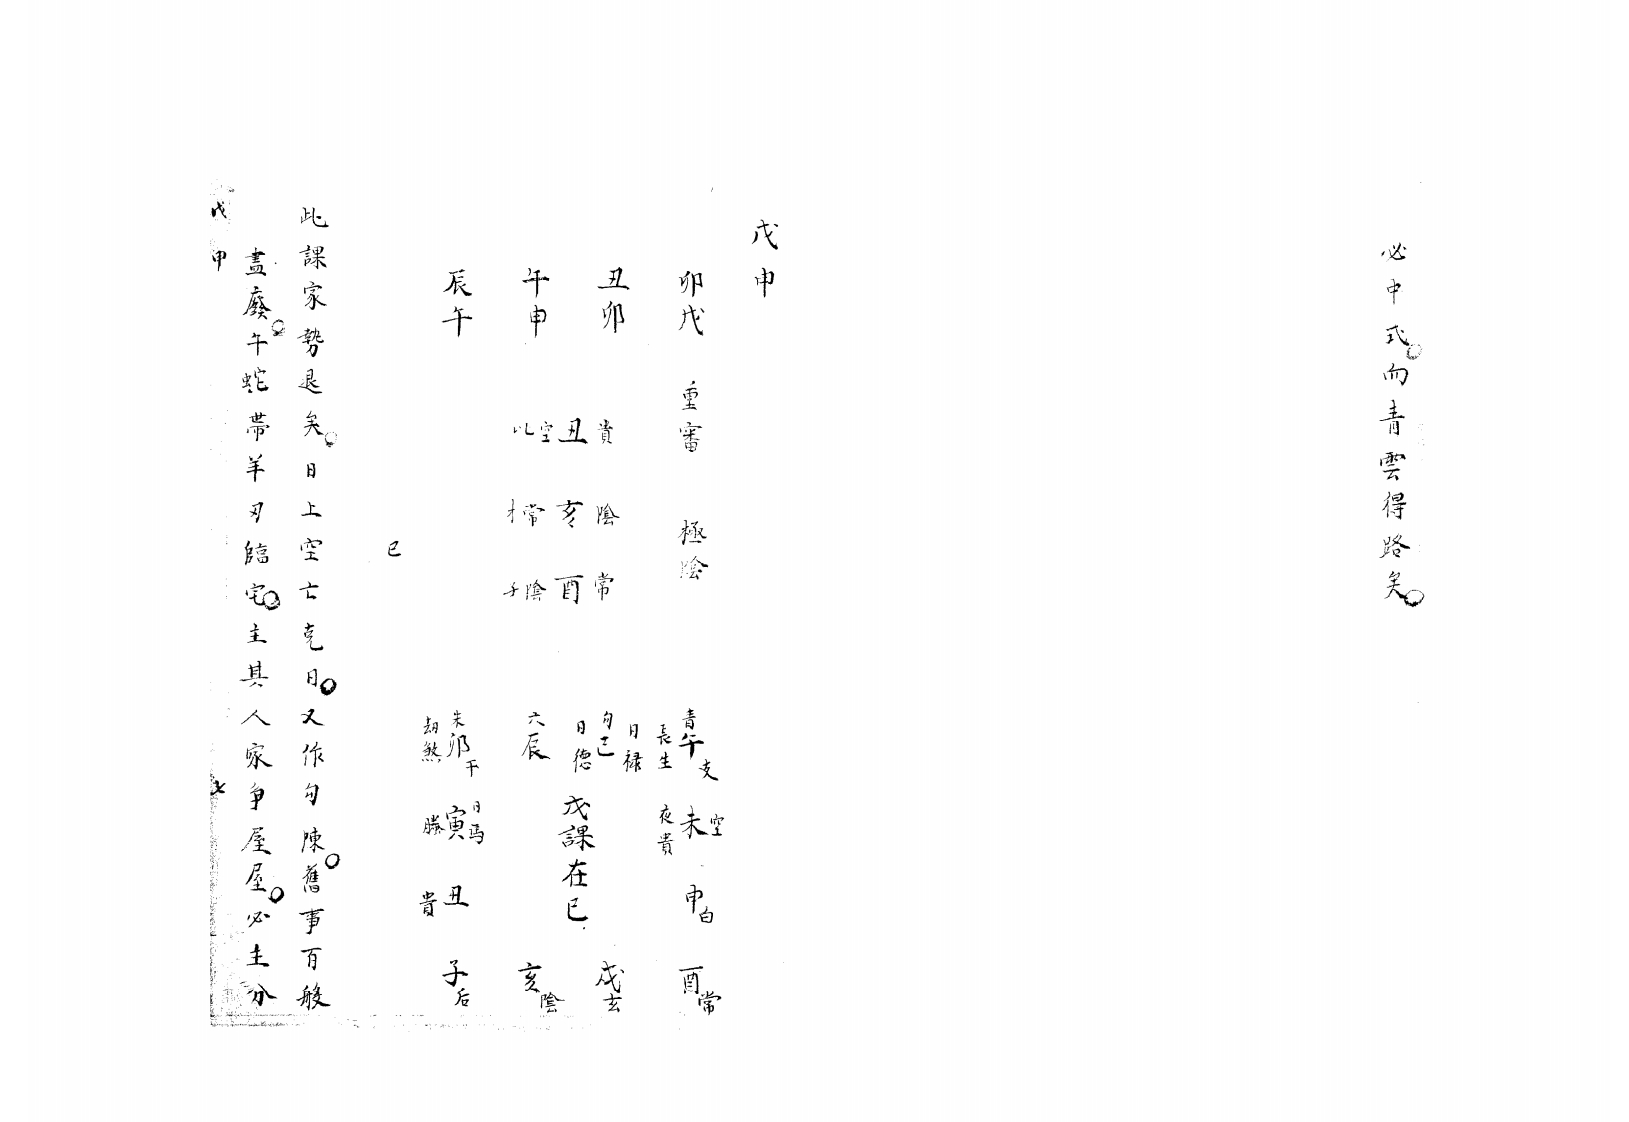 必中式。而青雲得路矣。
戊申
卯戊　重審　極陰
丑卯　貴　陰　常
丑　亥　酉
午申　空　常　陰
辰午
巳
青午支　長生
未空　夜貴
申白
酉常
日祿
勾巳　日德
戊課在巳
戌玄
六辰
亥陰
朱卯干　劫煞
日馬　寅　螣
丑　貴
子后
此課家勢退矣。日上空亡克日。又作勾陳。舊事百般
盡廢。午蛇帶羊刃臨宅。主其人家爭屋屋。必主分
戊申
七